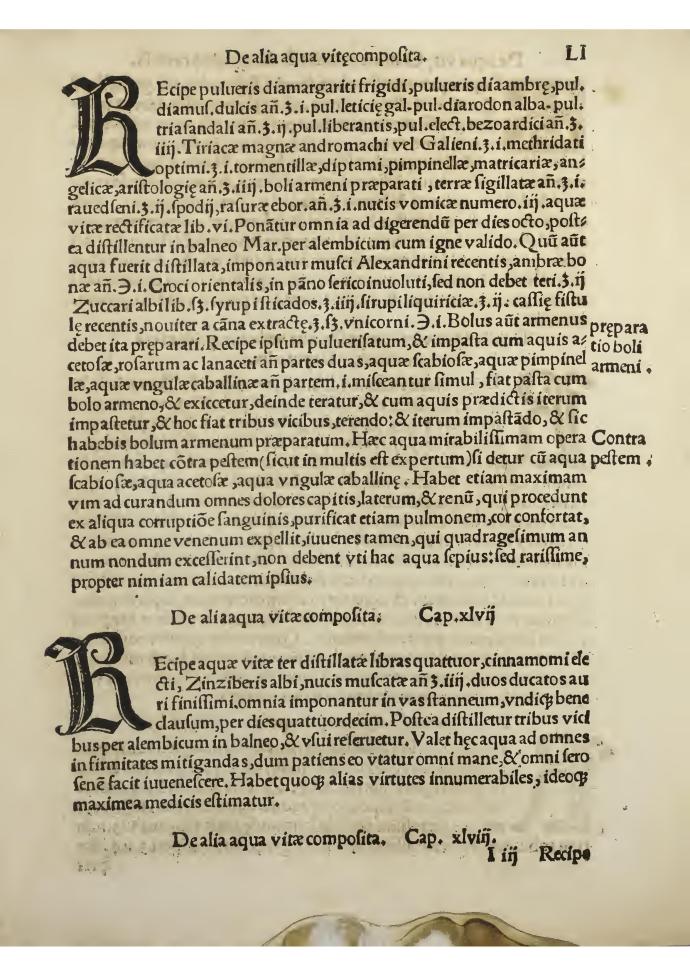 De alia aqua vitę composita. LI
REcipe pulueris diamargariti frigidi, pulueris diaambrę, pul.
diamus. dulcis añ. ʒ. i. pul. leticię gal. pul. diarodon alba. pul.
triasandali añ. ʒ. ij. pul. liberantis, pul. elect. bezoardici añ. ʒ.
iiij. Tiriacæ magnæ andromachi vel Galieni. ʒ. i. methridati
optimi. ʒ. i. tormentillæ, diptami, pimpinellæ, matricariæ, an⸗
gelicæ, aristologię añ. ʒ. iiij. boli armeni præparati, terræ sigillatæ añ. ʒ. i.
rauedseni. ʒ. ij. spodij, rasuræ ebor. añ. ʒ. i. nucis vomicæ numero. iij. aquæ
vitæ rectificatæ lib. vi. Ponãtur omnia ad digerendũ per dies octo, post⸗
ea distillentur in balneo Mar. per alembicum cum igne valido. Quũ aũt
aqua fuerit distillata, imponatur musci Alexandrini recentis, ambræ bo
næ añ. ℈. i. Croci orientalis, in pãno serico inuoluti, sed non debet teri. ʒ. ij
Zuccari albi lib. ß. syrupi sticados. ʒ. iiij. sirupi liquiriciæ. ʒ. ij. cassię fistu
lę recentis, nouiter a cãna extractę. ʒ. ß. vnicorni. ℈. i. Bolus aũt armenus
debet ita pręparari. Recipe ipsum puluerisatum, & impasta cum aquis a⸗
prepara
tio boli
armeni.
cetosæ, rosarum ac lanaceti añ partes duas, aquæ scabiosæ, aquæ pimpinel
læ, aquæ vngulæ caballinæ añ partem. i. misceantur simul, fiat pasta cum
bolo armeno, & exiccetur, deinde teratur, & cum aquis prædictis iterum
impastetur, & hoc fiat tribus vicibus, terendo: & iterum impastãdo, & sic
habebis bolum armenum præparatum. Hæc aqua mirabilissimam opera
Contra
pestem.
tionem habet cõtra pestem (sicut in multis est expertum) si detur cũ aqua
scabiosæ, aqua acetosæ, aqua vngulę caballinę. Habet etiam maximam
vim ad curandum omnes dolores capitis, laterum, & renũ, qui procedunt
ex aliqua corruptiõe sanguinis, purificat etiam pulmonem, cor confortat,
& ab ea omne venenum expellit, iuuenes tamen, qui quadragesimum an
num nondum excesserint, non debent vti hac aqua sepius: sed rarissime,
propter nimiam calidatem ipsius.
De alia aqua vitæ composita. Cap. xlvij
REcipe aquæ vitæ ter distillatæ libras quattuor, cinnamomi ele
cti, Zinziberis albi, nucis muscatæ añ ʒ. iiij. duos ducatos au
ri finissimi. omnia imponantur in vas stanneum, vndiqꝫ bene
clausum, per dies quattuordecim. Postea distilletur tribus vici
bus per alembicum in balneo, & vsui reseruetur. Valet hęc aqua ad omnes
infirmitates mitigandas, dum patiens eo vtatur omni mane, & omni sero
senẽ facit iuuenescere. Habet quoqꝫ alias virtutes innumerabiles, ideoqꝫ
maxime a medicis estimatur.
De alia aqua vitæ composita. Cap. xlviij.
I iij Recipe